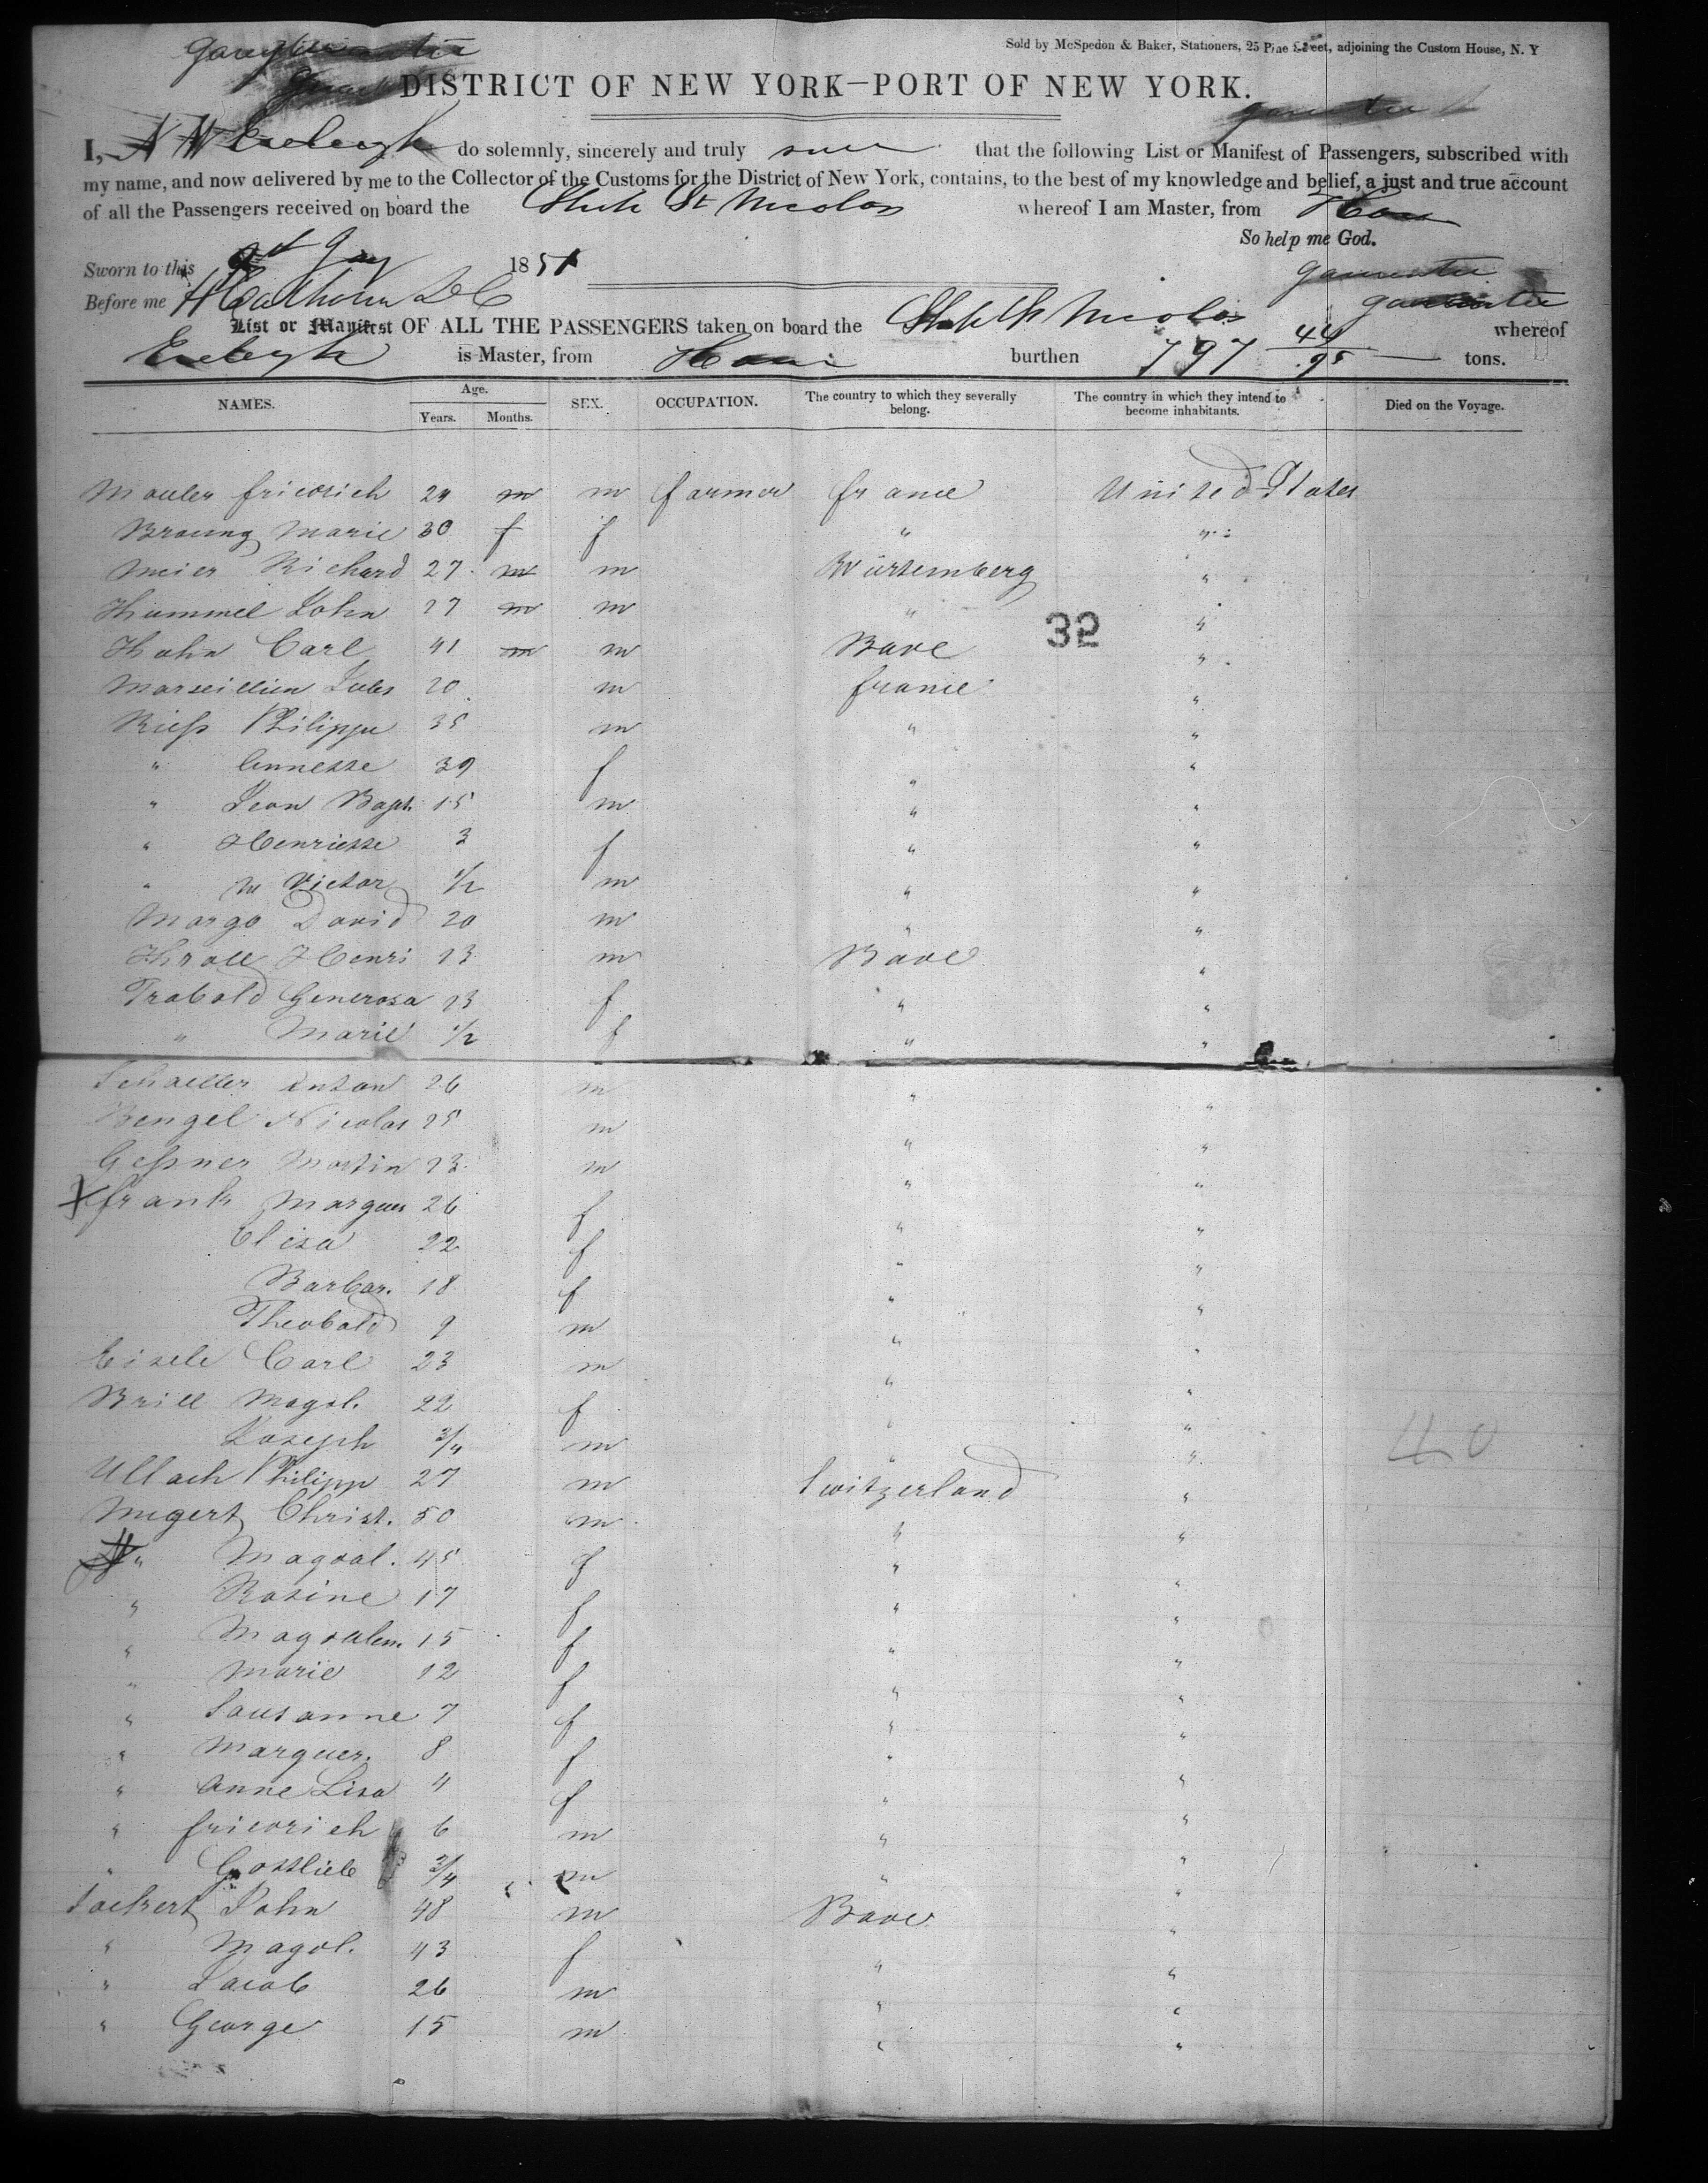 Sold by McSpedon & Baker, Stationers, 25 Pine Street, adjoining the Custom House, N. Y
DISTRICT OF NEW YORK—PORT OF NEW YORK.
I, do solemnly, sincerely and truly that the following List or Manifest of Passengers, subscribed with
my name, and now delivered by me to the Collector of the Customs for the District of New York, contains, to the best of my knowledge and belief, a just and true account
of all the Passengers received on board the Ship St Nicolas whereof I am Master, from
So help me God.
Sworn to this 1851
Before me
List or Manifest OF ALL THE PASSENGERS taken on board the Ship St Nicolas whereof
is Master, from burthen 797 44/95 tons.
NAMES. Age. Years. Months. SEX. OCCUPATION. The country to which they severally belong. The country in which they intend to become inhabitants. Died on the Voyage.
friedrich 24 m m farmer france United States
Marie 30 f f " "
Meier Richard 27 m m Würtemberg "
Hummel John 27 m m " "
32
Hahn Carl 41 m m Bave "
Jules 20 m france "
Riehs Philippe 35 m " "
" Annette 39 f " "
" Jean Bapt. 15 m " "
" Henriette 3 f " "
" Victor 1/2 m " "
Margo David 20 m " "
Henri 23 m Bave "
Trabold Generosa 23 f " "
" Marie 1/2 f " "
Anton 26 m " "
Bengel Nicolas 25 m " "
Gehsner Martin 23 m " "
X frank Marguer 26 f " "
Elisa 22 f " "
Barbar. 18 f " "
Theobald 9 m " "
Eisele Carl 23 m " "
Brill Magd. 22 f " "
Joseph 3/4 m " "
40
Ullach Philipp 27 m Switzerland "
Christ. 50 m " "
" Magdal. 45 f " "
" Rosine 17 f " "
" Magdalen. 15 f " "
" Marie 12 f " "
" Sausanne 7 f " "
" Marguer. 8 f " "
" Anne Lisa 4 f " "
" friedrich 6 m " "
" Gottlieb 3/4 m " "
John 48 m Bave "
" Magd. 43 f " "
" Jacob 26 m " "
" George 15 m " "